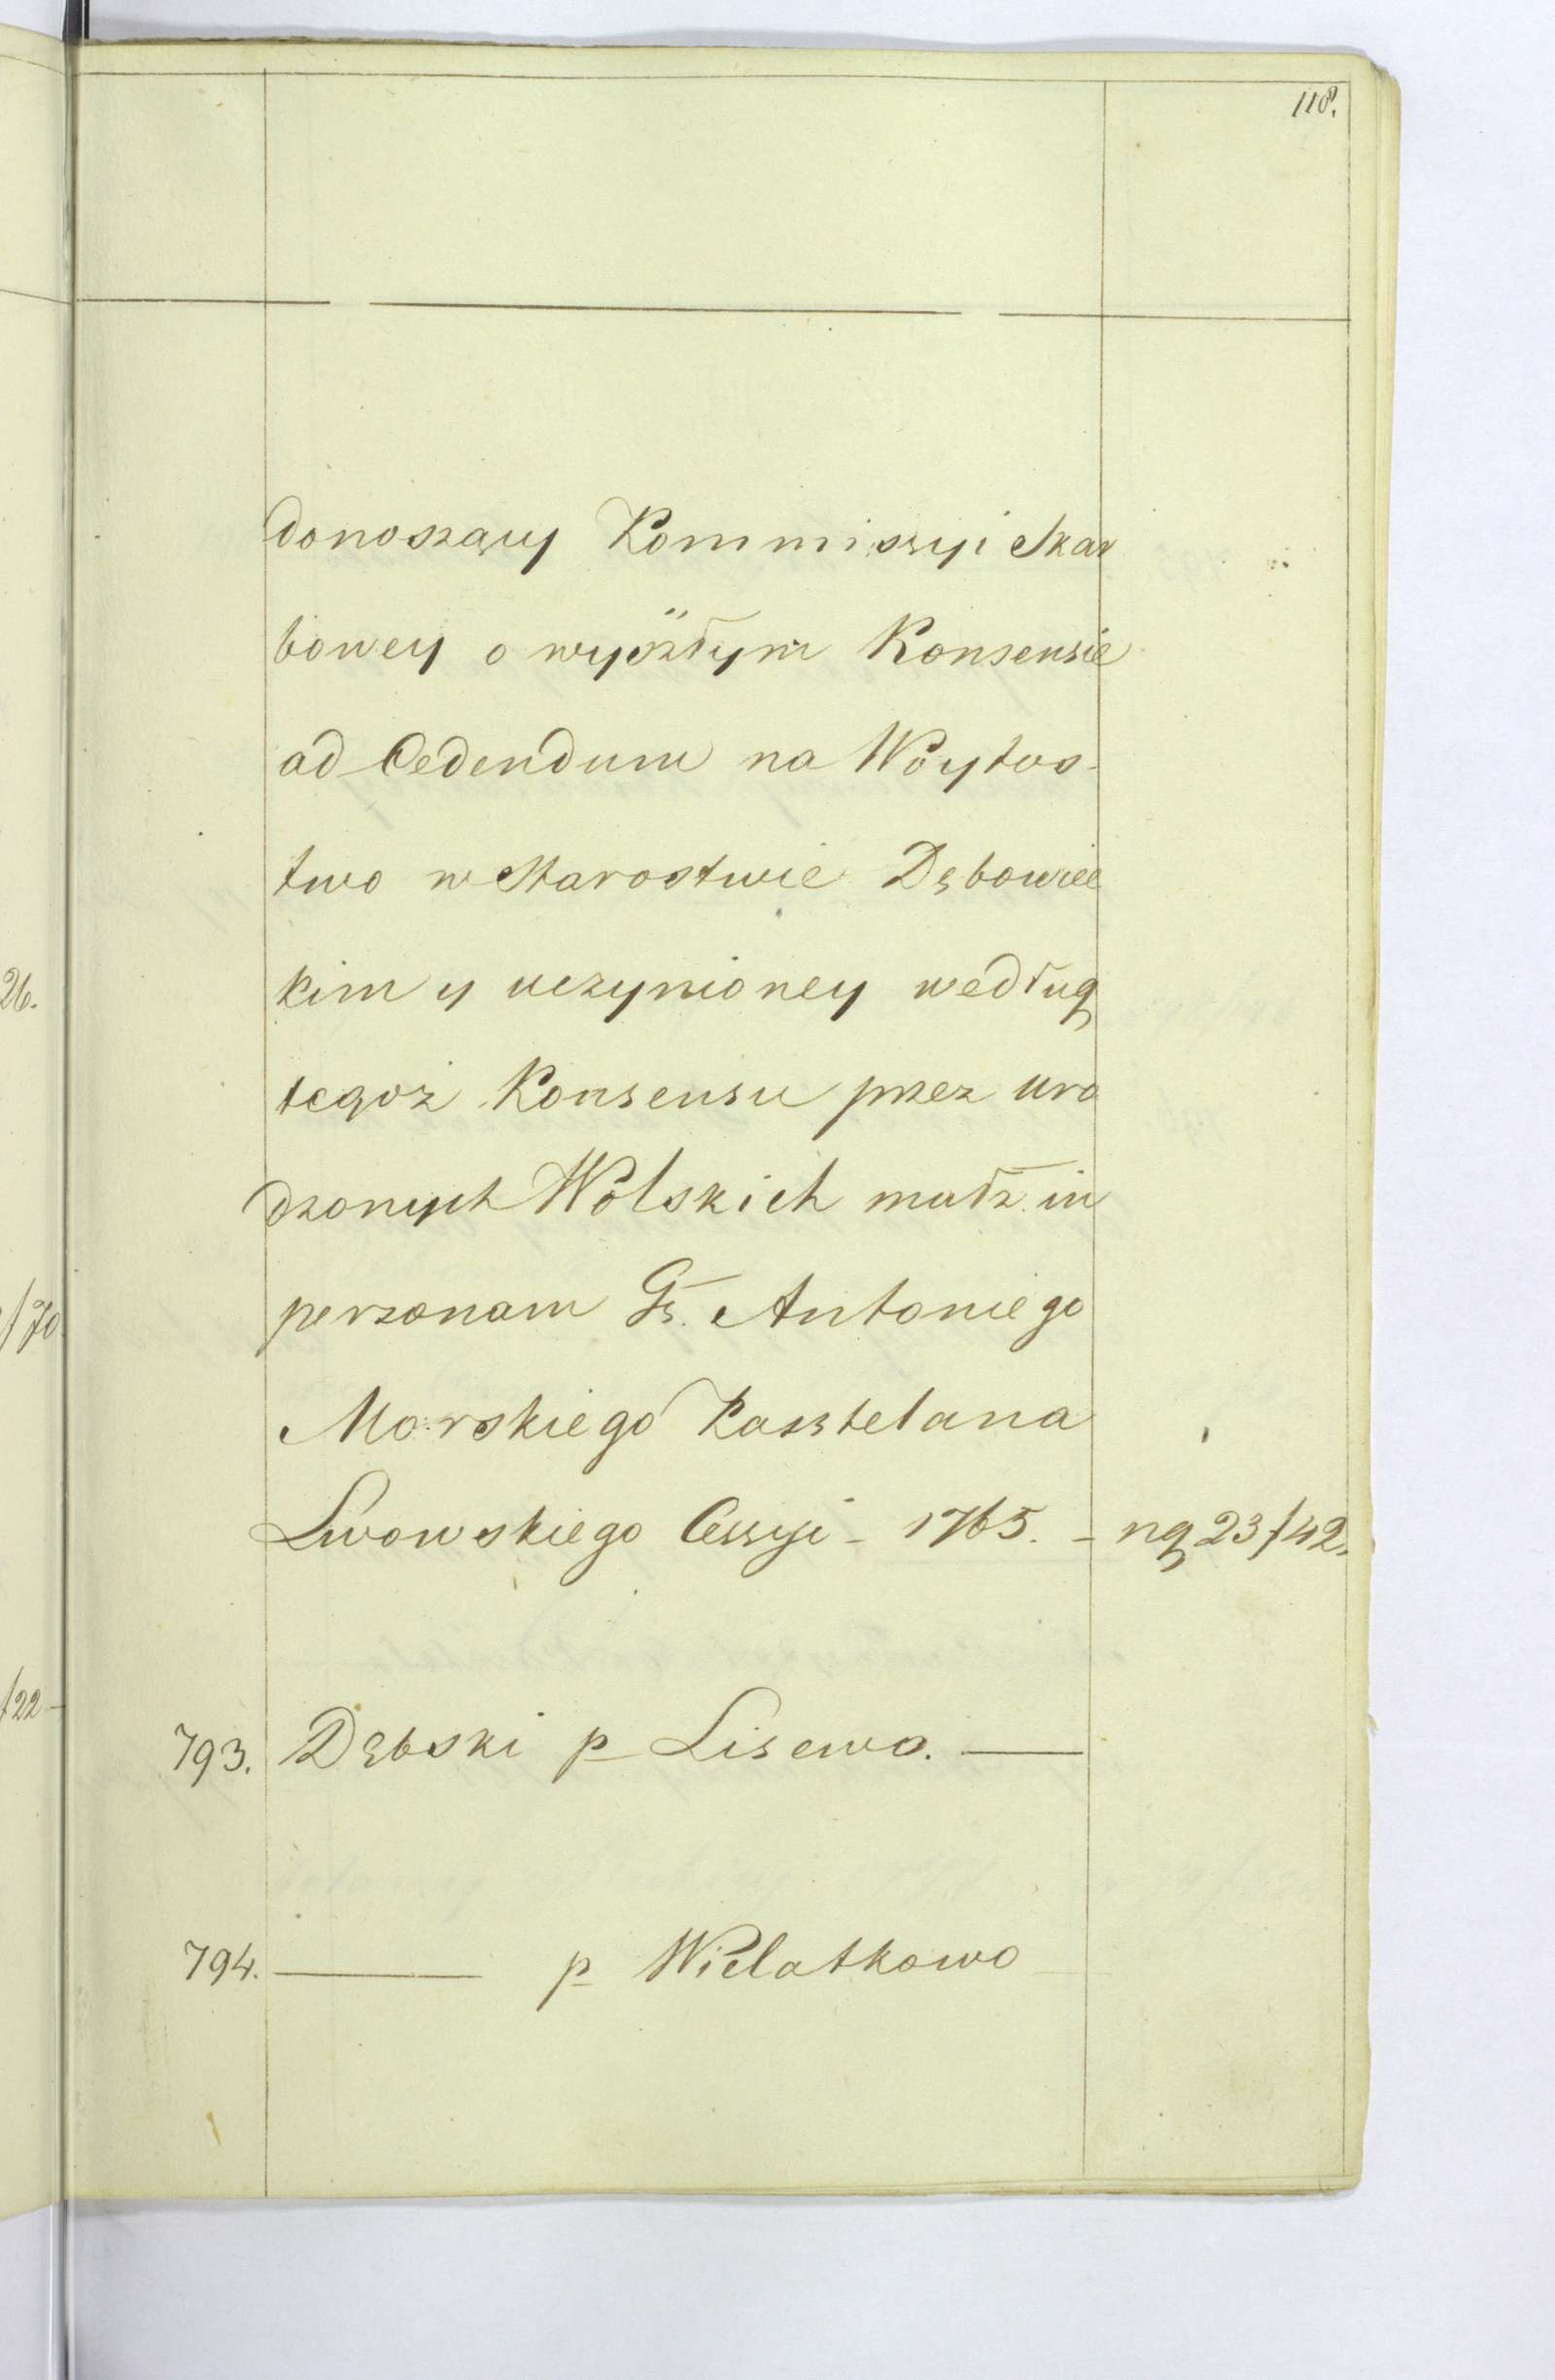 118.
donoszący Kommissyi Skar
bowey o wyszłym Konsensie
ad Cedendum na Woytos-
two w Starostwie Dębowiec
kim y uczynioney według
tegoż Konsensu przez uro
dzonych Wolskich małż. in
personam Gs. Antoniego
Morskiego Kasztelana
Lwowskiego Cessyi - 1765. - ng 23/42.
793. Dąbski p Lisewo. —
794. — p Wielatkowo
26.
/70
/22 -